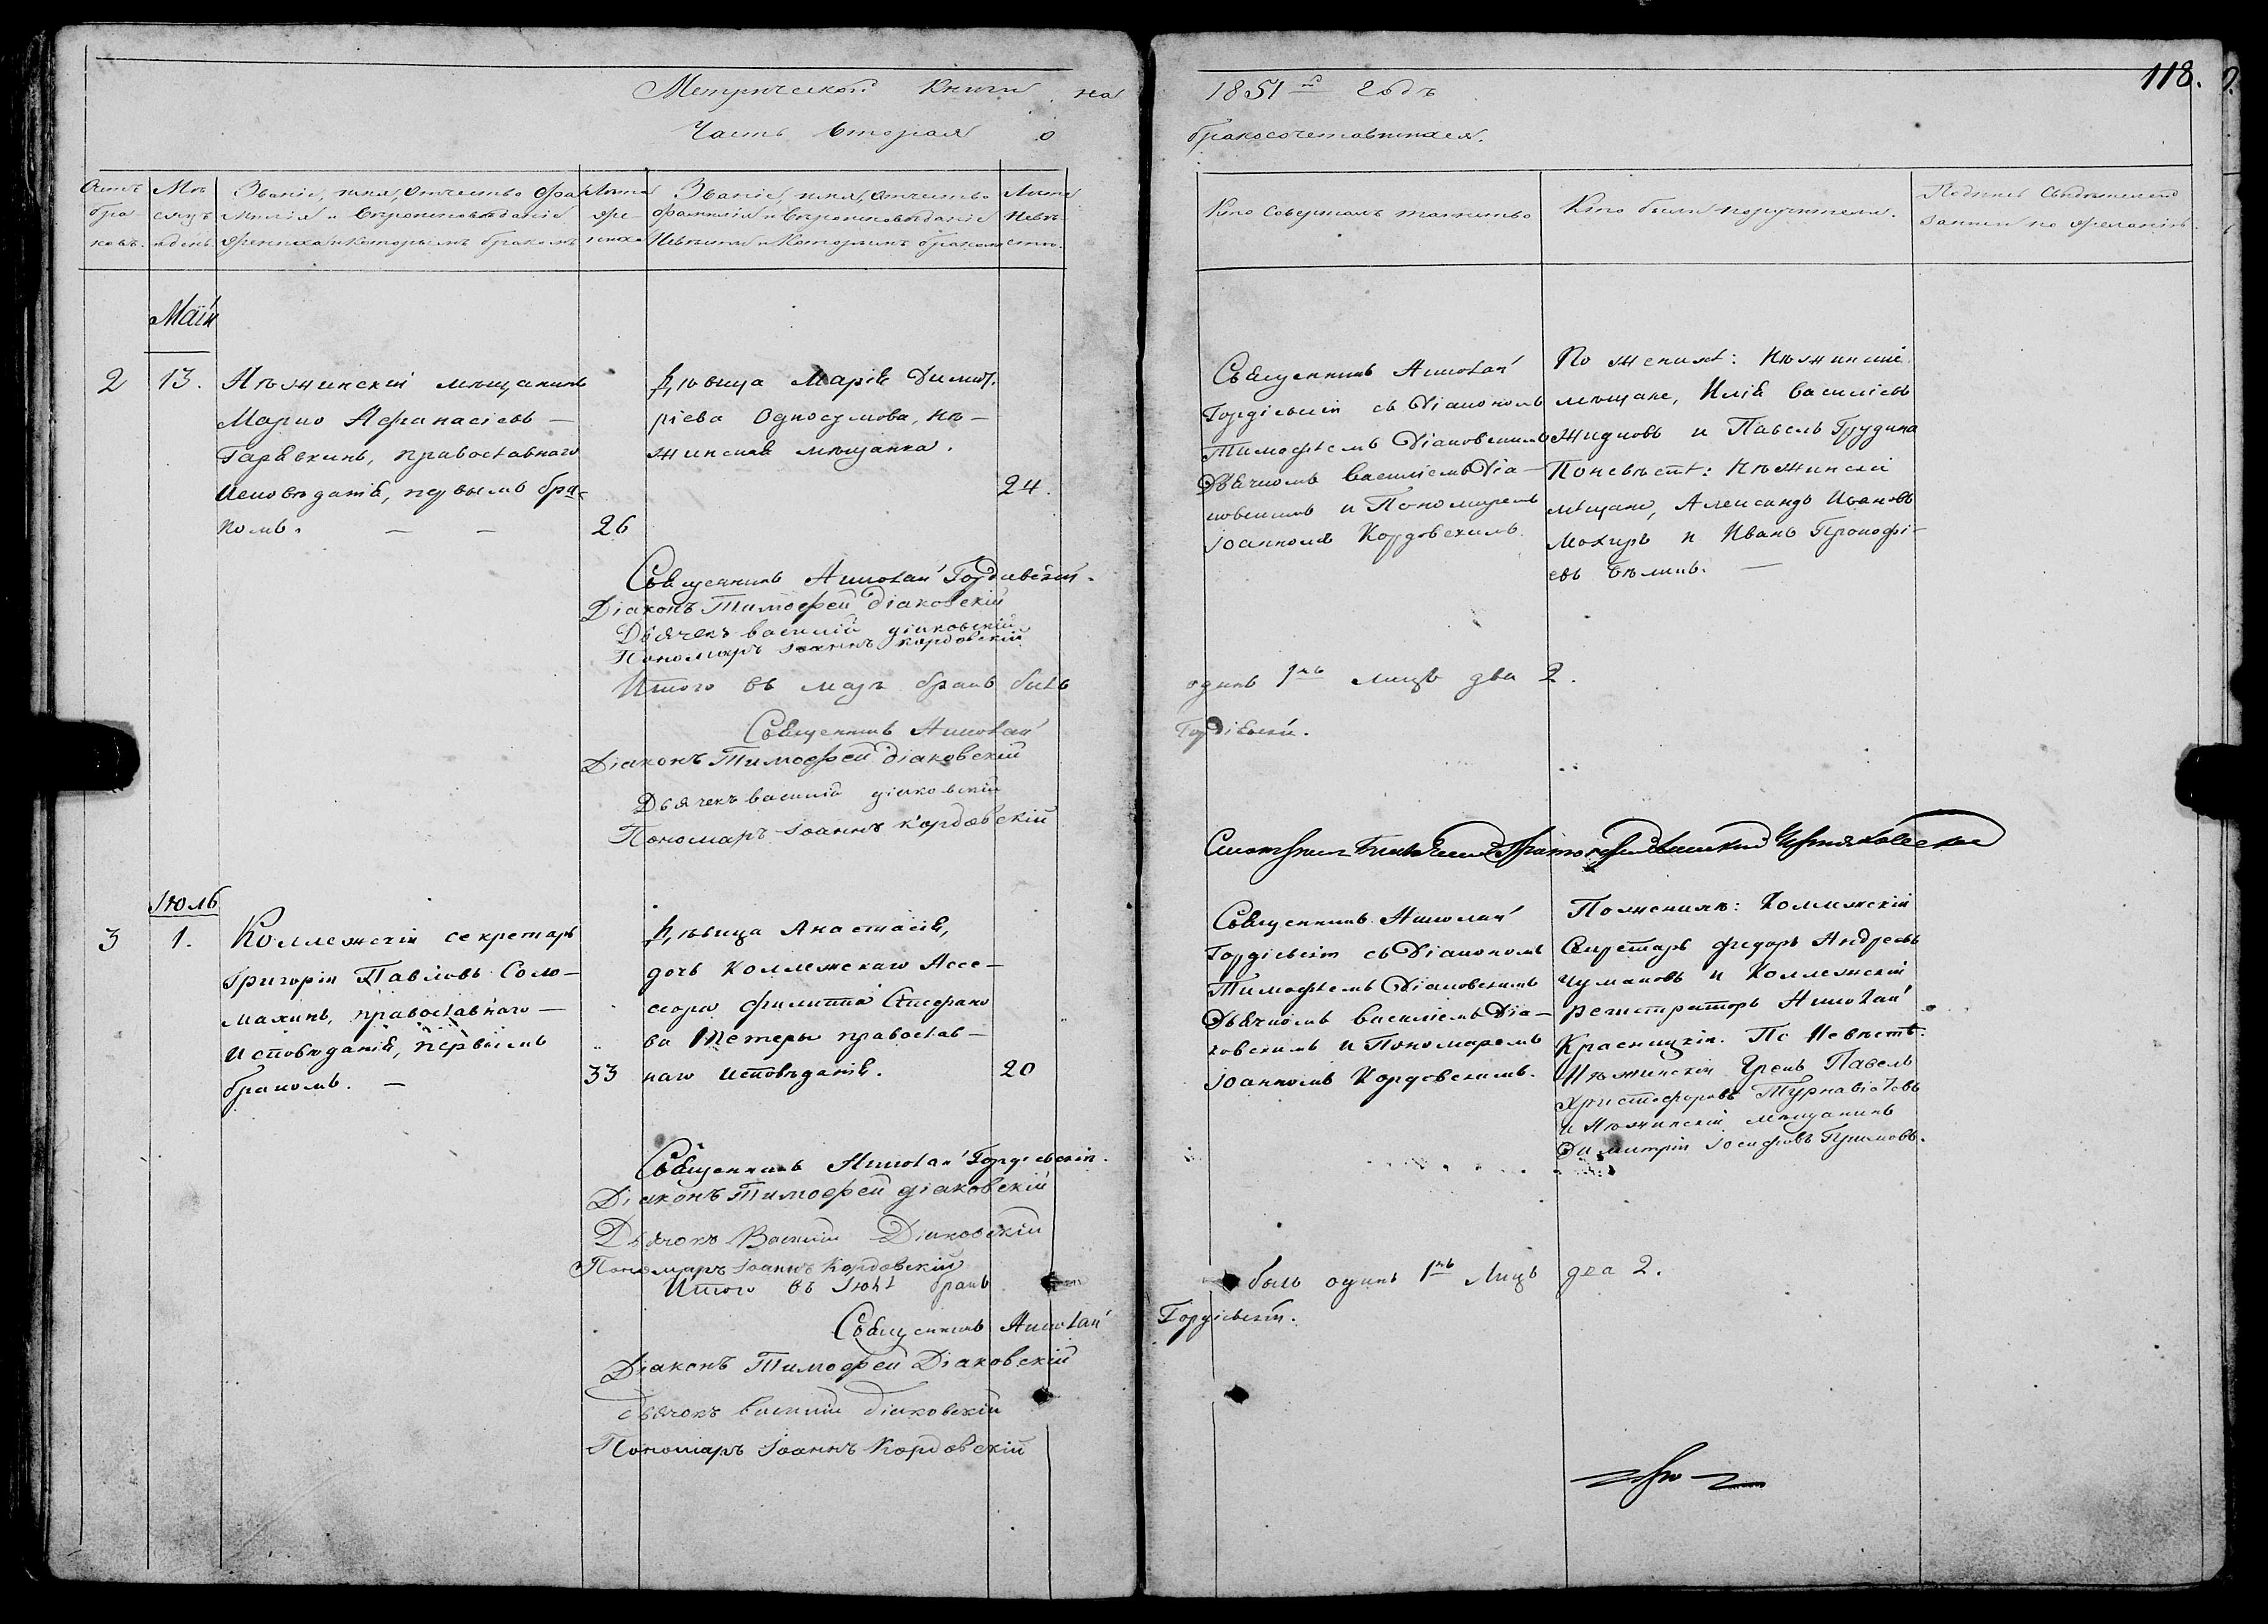 Метрической Книги на 1851й годъ
118.
Часть вторая о бракосочетавшихся.
Счетъ браковъ.
Мѣсяцъ и день
Званіе, имя, отчество фамилія и вѣроисповѣданіе жениха и которымъ бракомъ
Лѣта жениха
Званіе, имя, отчество фамилія и вѣроисповѣданіе Невѣсты и Которымъ бракомъ
Лѣта Невѣсты.
Кто совершалъ таинство
Кто были поручители.
Подпись свидѣтелей записи по желанію.
Маій
2
13.
Нѣжинскій мѣщанинъ
Марко Афанасіевъ —
Гарявкинъ, православнаго
Исповѣданія, первымъ бра-
комъ. — —
26
Дѣвица Марія Димит.
ріева Односумова, Нѣ-
жинская мѣщанка.
24.
Священникъ Николай
Гордіевскій съ Діакономъ
Тимофѣемъ Діаковскимъ
Дьячкомъ Василіемъ Діа-
ковскимъ и Пономаремъ
Іоанномъ Кордовскимъ.
По женихѣ: Нѣжинскіе
мѣщане, Илія Василіевъ
Жидковъ и Павелъ Грудина
По невѣстѣ: Нѣжинскіе
мѣщане, Александръ Ивановъ
Мохиръ и Иванъ Прокофі-
евъ Бѣликъ. —
Священникъ Николай Гордіевскій.
Діаконъ Тимофей Діаковскій
Дьячекъ Василій Діаковскій
Пономарь Іоаннъ Кордовскій
Итого въ маѣ бракъ былъ одинъ 1нъ лицъ два 2.
Священникъ Николай Гордіевскій.
Діаконъ Тимофей Діаковскій
Дьячекъ Василій Діаковскій
Пономарь Іоаннъ Кордовскій
Іюль
3
1.
Коллежскій секретарь
Григорій Павловъ Соло-
махинъ, православнаго —
Исповѣданія, первымъ
бракомъ. —
33
Дѣвица Анастасія,
дочь Коллежскаго Ассе-
сора Филиппа Стефано
ва Тетеры православ-
наго исповѣданія.
20
Священникъ Николай
Гордіевскій съ Діакономъ
Тимофѣемъ Діаковскимъ
Дьячкомъ Василіемъ Діа-
ковскимъ и Пономаремъ
Іоанномъ Кордовскимъ.
По женихѣ: Коллежскій
Секретарь Федоръ Андреевъ
Чумаковъ и Коллежскій
регистраторъ Николай
Красницкій. По Невѣстѣ:
Нѣжинскій Грекъ Павелъ
Христофоровъ Турнавіотовъ
и Нѣжинскій мѣщанинъ
Димитрій Іосифовъ Примовъ.
Священникъ Николай Гордіевскій.
Діаконъ Тимофей Діаковскій
Дьячокъ Василій Діаковскій
Пономарь Іоаннъ Кордовскій
Итого въ Іюлѣ бракъ былъ одинъ 1нъ Лицъ два 2.
Священникъ Николай Гордіевскій.
Діаконъ Тимофей Діаковскій
Дьячокъ Василій Діаковскій
Пономарь Іоаннъ Кордовскій